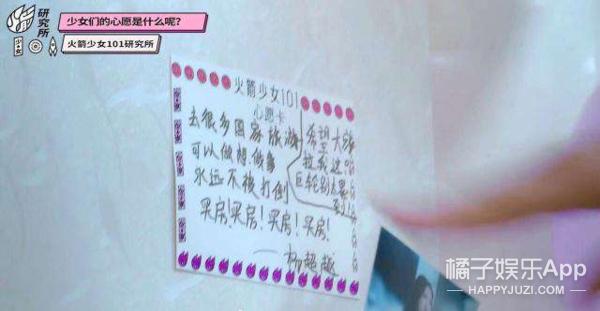 研究所
少女们的心愿是什么呢?
少女
火箭少女101研究所
火箭少女101
心愿卡
去很多国家旅游
可以做想做事
永远不被打倒
买房!买房!买房!买房!
—杨超越
希望大家
拉我这
巨轮别太累
橘子娱乐App
HAPPYJUZI.COM